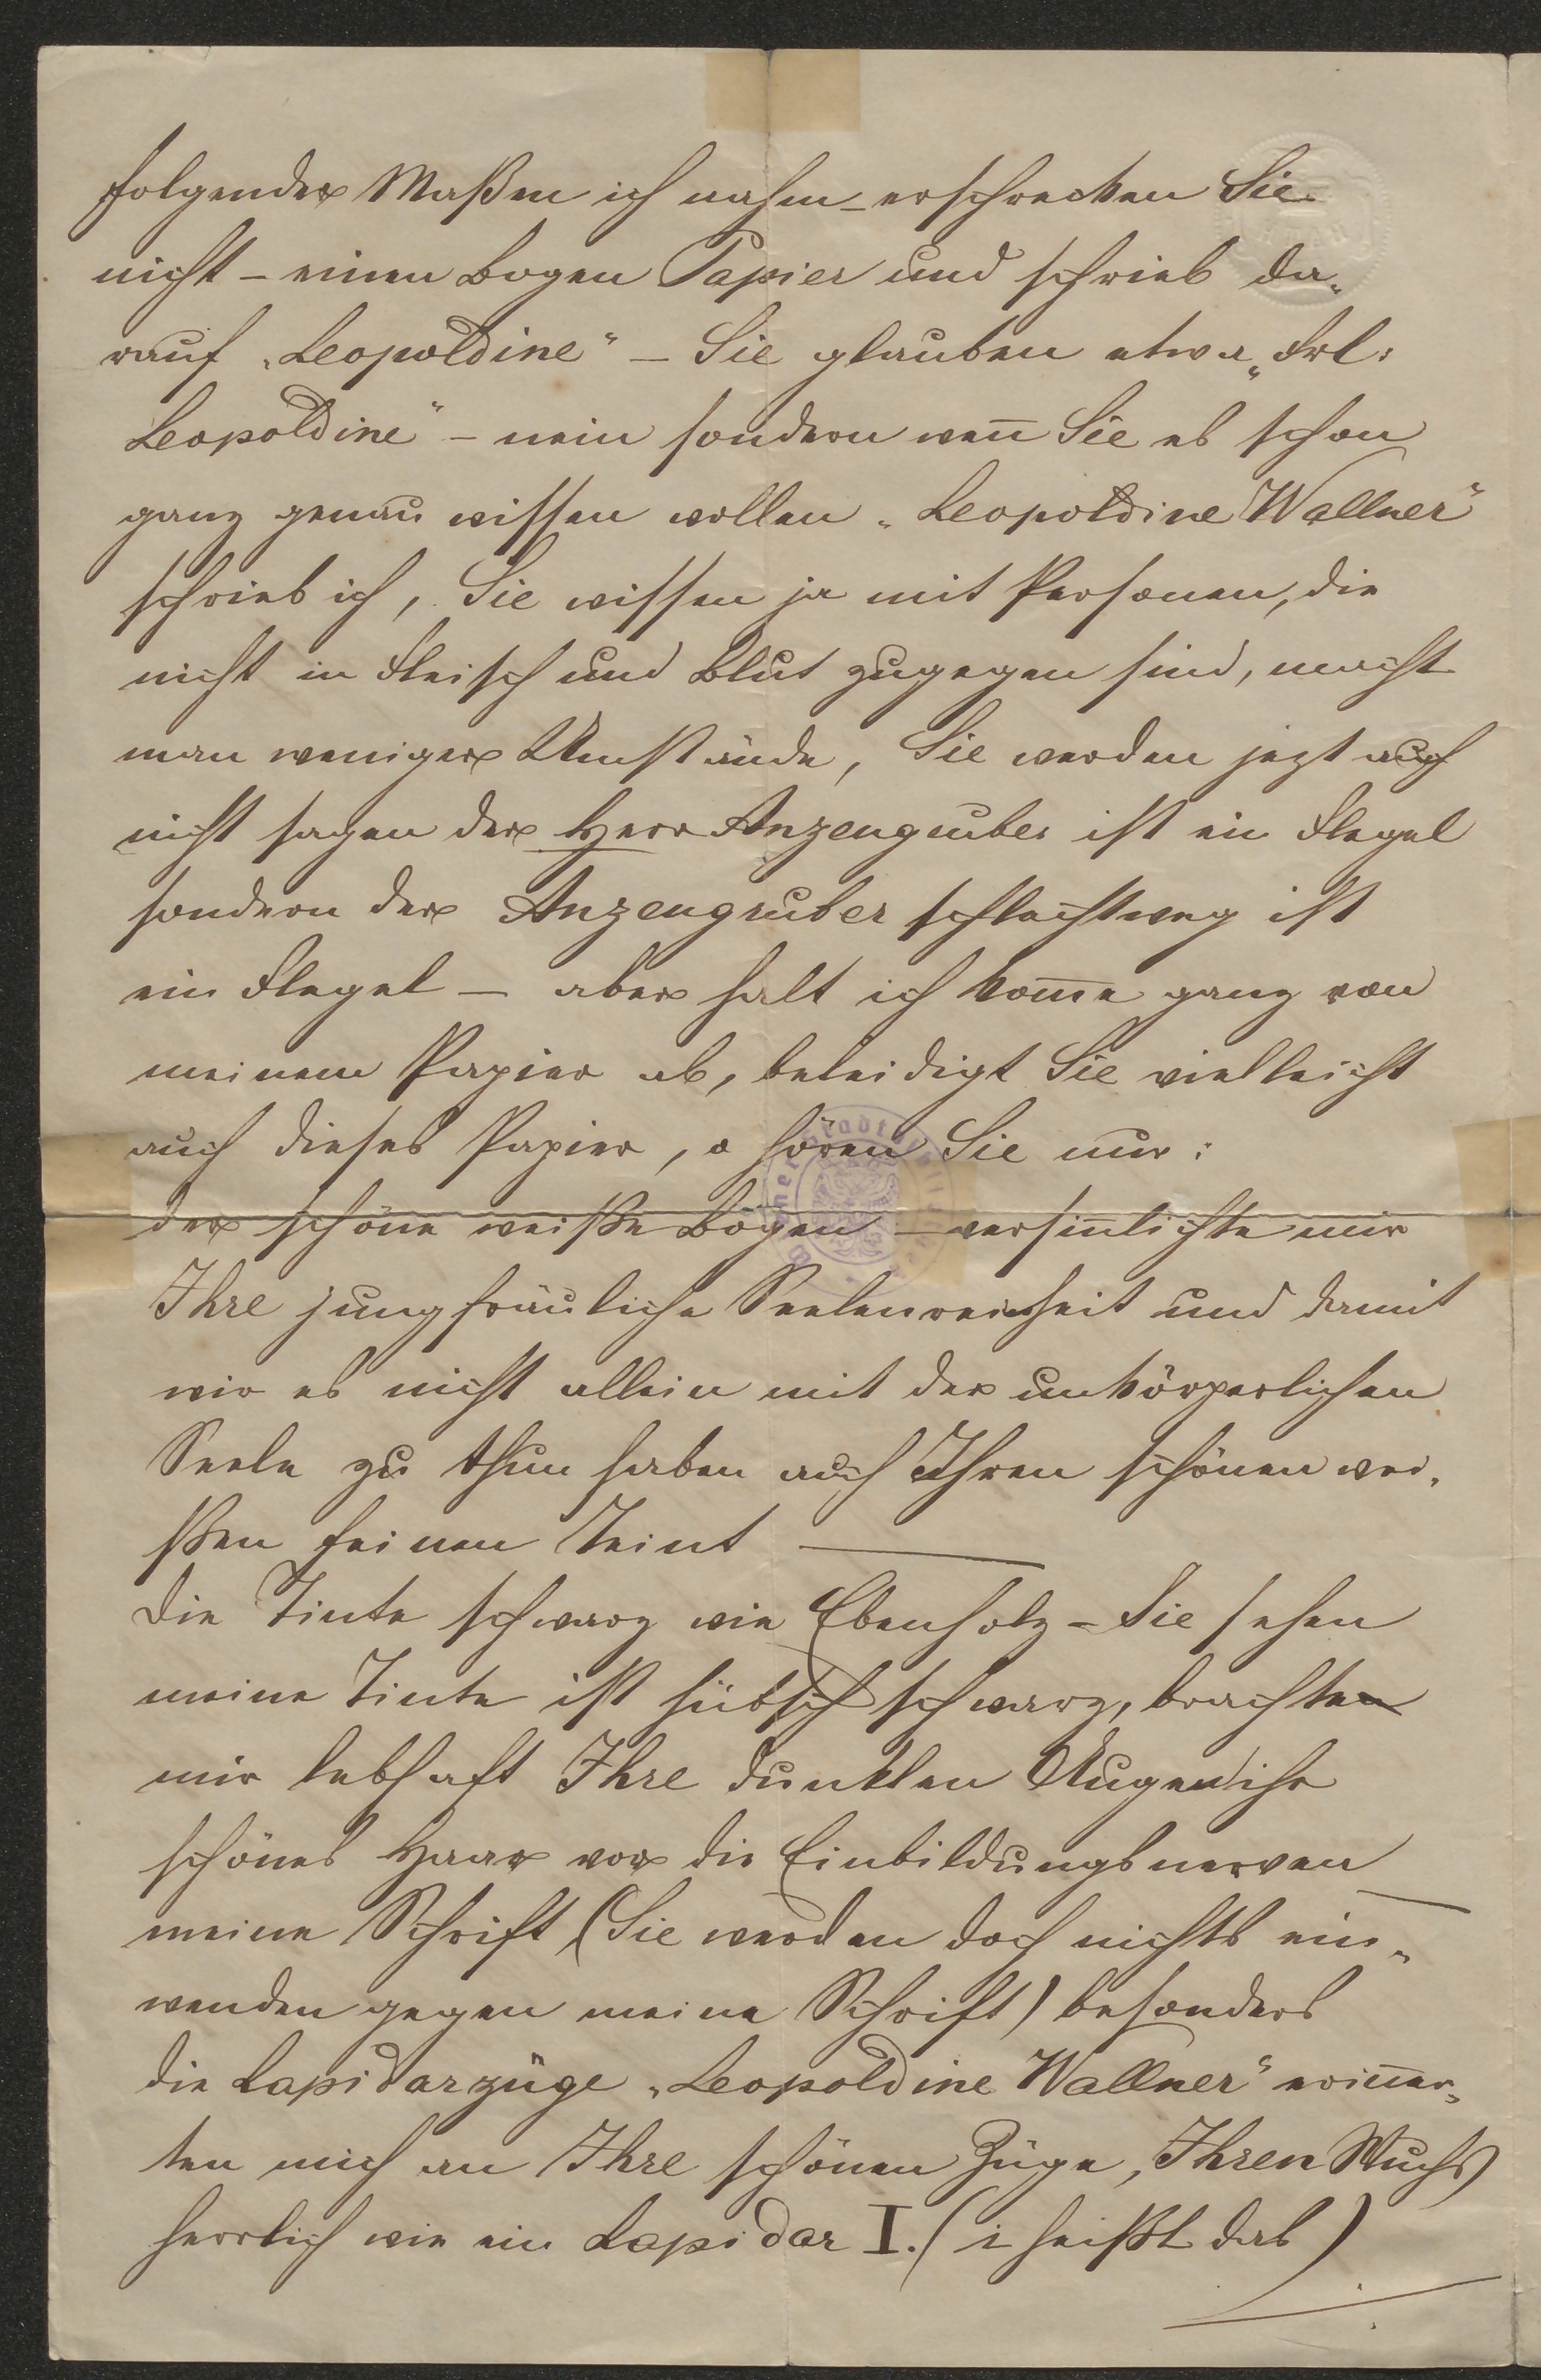 folgender Maßen ich nahm – erschrecken Sie
nicht – einen Bogen Papier und schrieb da„
rauf „Leopoldine“ – Sie glauben etwa „Frl:
Leopoldine“ – nein sondern weñ Sie es schon
ganz genau wissen wollen „Leopoldine Wallner“
schrieb ich, Sie wissen ja mit Personen, die
nicht in Fleisch und Blut zugegen sind, macht
man weniger Umstände, Sie werden jezt auch
nicht sagen der Herr Anzengruber ist ein Flegel
sondern der Anzengruber schlechtweg ist
ein Flegel – aber halt ich kom̄e ganz von
meinem Papier ab, beleidigt Sie vielleicht
auch dieses Papier, o hören Sie nur:
der schöne weiße Bogen – versiñlichte mir
Ihre jungfräuliche Seelenreinheit und damit
wir es nicht allein mit der unkörperlichen
Seele zu thun haben auch Ihren schönen wei„
ßen feinen Teint —
Die Tinte schwarz wie Ebenholz – Sie sehen
meine Tinte ist hübsch schwarz, brachte
mir lebhaft Ihre dunklen Augen ihr
schönes Haar vor die Einbildungsnerven —
meine Schrift (Sie werden doch nichts ein„
wenden gegen meine Schrift) besonders
die Lapidarzüge „Leopoldine Wallner“ eriñer„
ten mich an Ihre schönen Züge, Ihren Wuchs
herrlich wie ein Lapidar I. (i heißt das)